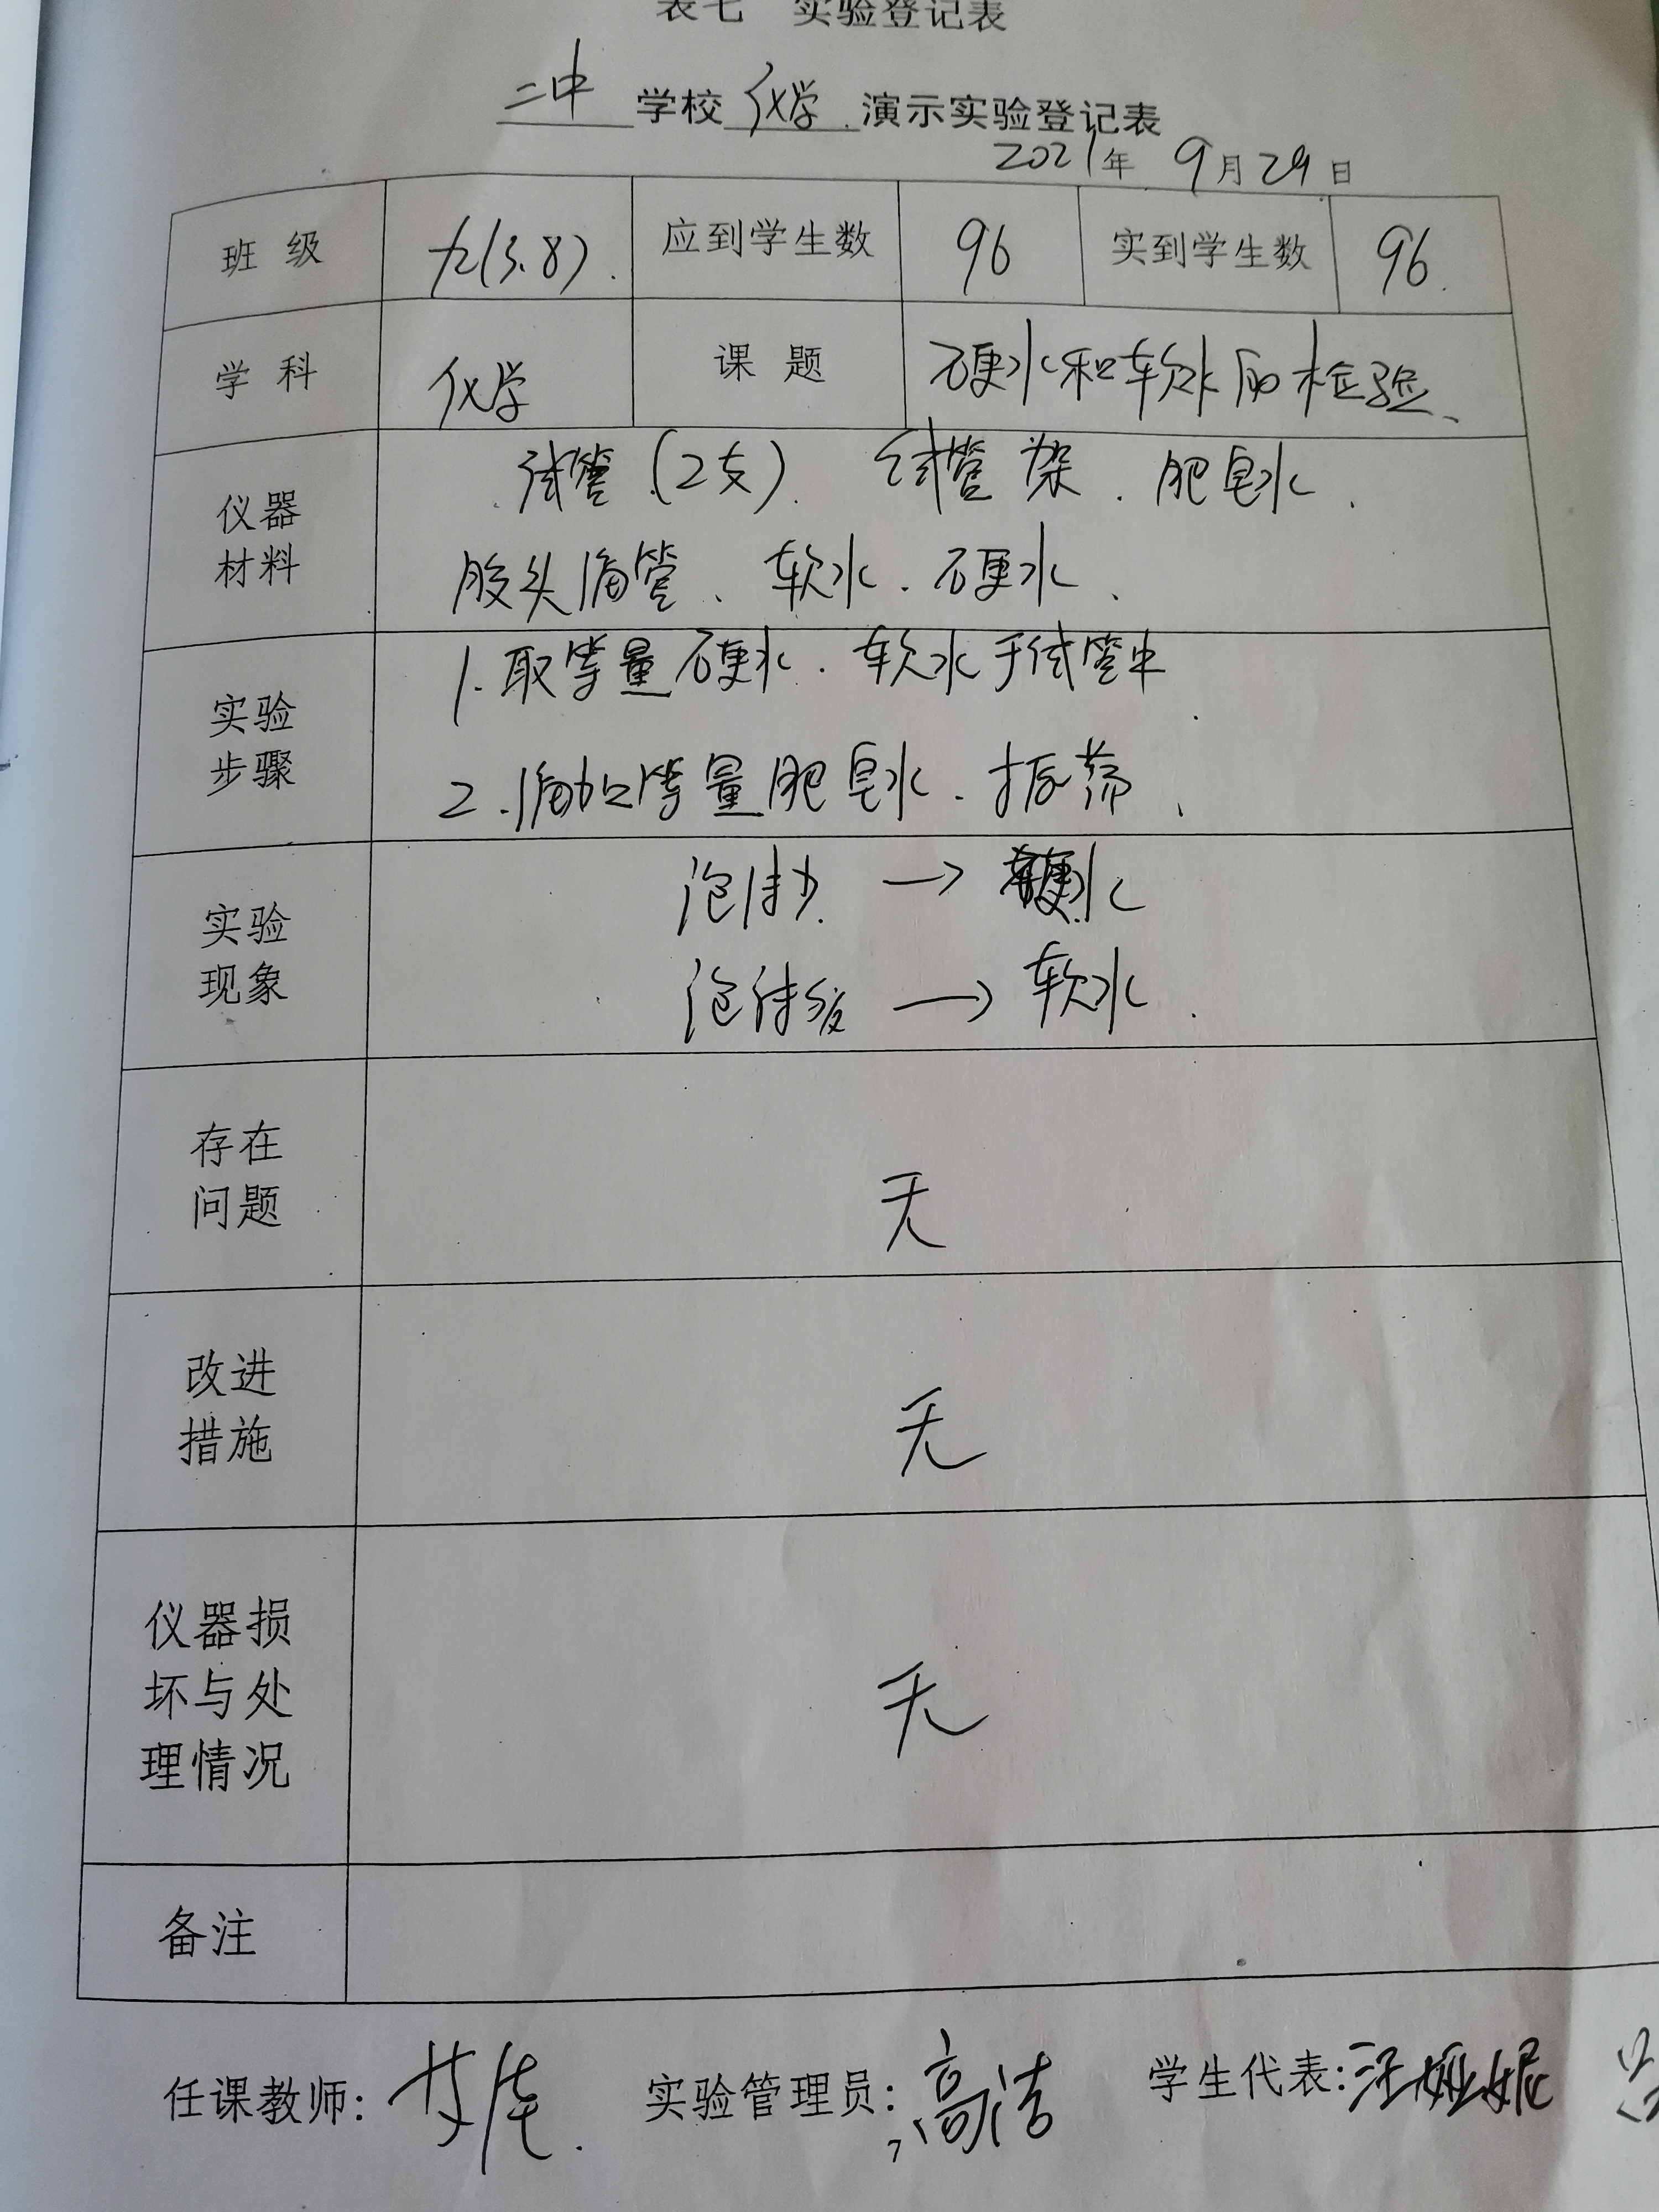 表七 实验登记表
二中 学校 化学 演示实验登记表
2021年 9月29日
班级 九(3.8). 应到学生数 96 实到学生数 96.
学科 化学 课题 硬水和软水的检验、
仪器材料 试管(2支). 试管架. 肥皂水.
胶头滴管、软水. 硬水.
实验步骤 1.取等量硬水. 软水于试管中.
2.滴加等量肥皂水. 振荡、
实验现象 泡沫少. → 硬水
泡沫多 → 软水.
存在问题 无
改进措施 无
仪器损坏与处理情况 无
备注
任课教师: 实验管理员: 高洁 学生代表: 汪娅妮